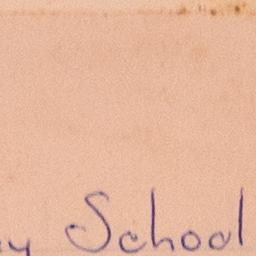 y School